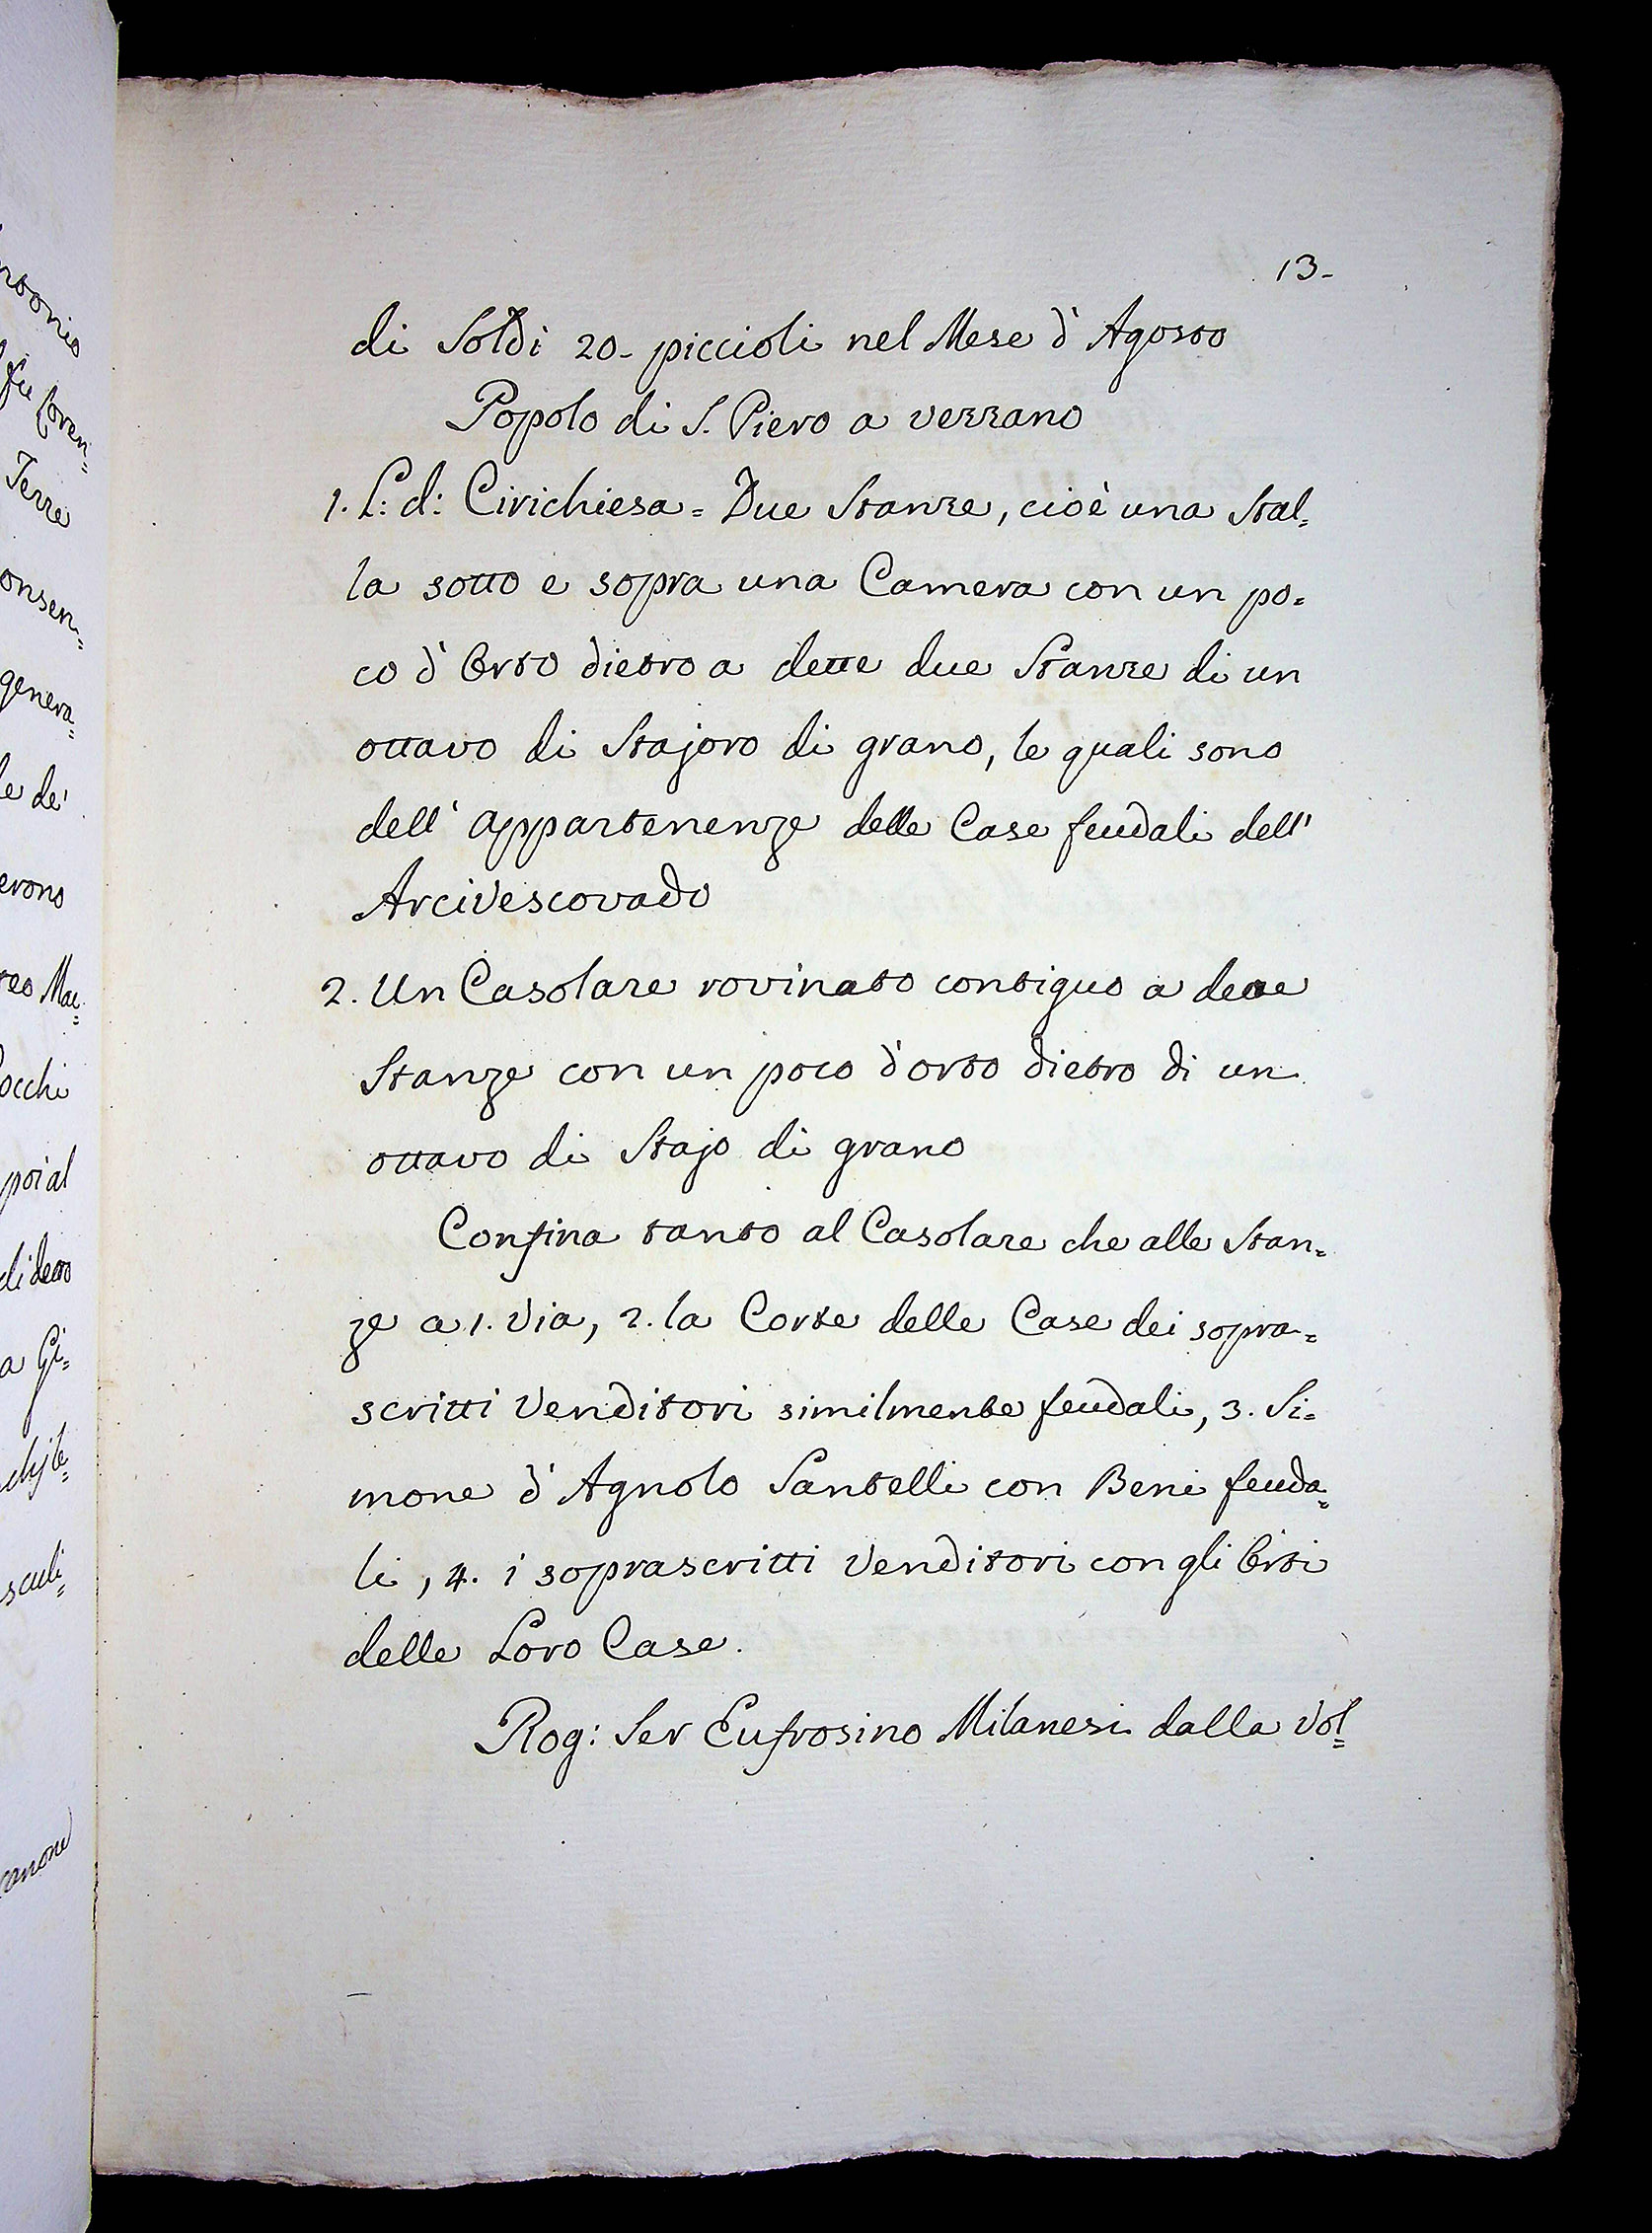 13-
di Soldi 20- piccioli nel Mese d' Agosto
Popolo di S. Piero a vezzano
1. L: d: Cirichiesa = Due Stanze, cioè una Stal=
la sotto e sopra una Camera con un po=
co d' Orto dietro a dette due Stanze di un
ottavo di Stajoro di grano, le quali sono
dell' appartenenze delle Case feudali dell'
Arcivescovado
2. Un Casolare rovinato contiguo a dette
Stanze con un poco d'orto dietro di un
ottavo di Stajo di grano
Confina tanto al Casolare che alle Stan=
ze a 1. Via, 2. la Corte delle Case dei sopra=
scritti Venditori similmente feudali, 3. Si=
mone d' Agnolo Santelli con Beni feuda=
li, 4. i soprascritti Venditori con gli Orti
delle Loro Case.
Rog: Ser Eufrosino Milanesi dalla Vol=